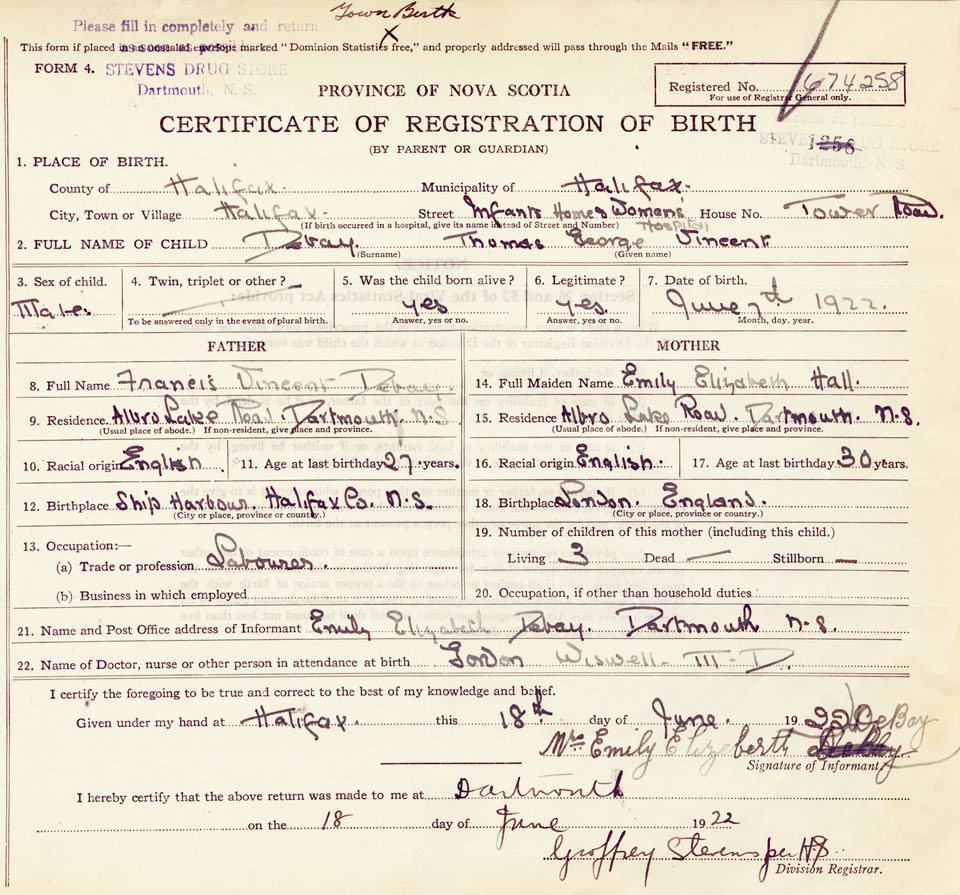 Town Birth
X
Please fill in completely and return
as soon as possible
This form if placed in an unsealed envelope marked "Dominion Statistics free," and properly addressed will pass through the Mails "FREE."
FORM 4. STEVENS DRUG STORE
Dartmouth, N. S.
PROVINCE OF NOVA SCOTIA
Registered No. 674258
For use of Registrar General only.
CERTIFICATE OF REGISTRATION OF BIRTH
(BY PARENT OR GUARDIAN)
as soon as possible
STEVENS DRUG STORE
Dartmouth, N. S.
1258
1. PLACE OF BIRTH.
County of Halifax. Municipality of Halifax.
City, Town or Village Halifax. Street Infants Homes Womens' Hospital House No. Tower Road.
(If birth occurred in a hospital, give its name instead of Street and Number)
2. FULL NAME OF CHILD Debay. Thomas George Vincent
(Surname) (Given name)
3. Sex of child. Male.
4. Twin, triplet or other? —
To be answered only in the event of plural birth.
5. Was the child born alive? yes
Answer, yes or no.
6. Legitimate? yes.
Answer, yes or no.
7. Date of birth. June 7th 1922.
Month, day, year.
FATHER
8. Full Name Francis Vincent Debay.
9. Residence Albro Lake Road. Dartmouth. N.S.
(Usual place of abode.) If non-resident, give place and province.
10. Racial origin English. 11. Age at last birthday 27 years.
12. Birthplace Ship Harbour. Halifax Co. N.S.
(City or place, province or country.)
13. Occupation:—
(a) Trade or profession Labourer.
(b) Business in which employed
MOTHER
14. Full Maiden Name Emily Elizabeth Hall.
15. Residence Albro Lake Road. Dartmouth. N.S.
(Usual place of abode.) If non-resident, give place and province.
16. Racial origin English. 17. Age at last birthday 30 years.
18. Birthplace London. England.
(City or place, province or country.)
19. Number of children of this mother (including this child.)
Living 3 Dead — Stillborn —
20. Occupation, if other than household duties
21. Name and Post Office address of Informant Emily Elizabeth Debay. Dartmouth N.S.
22. Name of Doctor, nurse or other person in attendance at birth Gordon Wiswell M-D.
I certify the foregoing to be true and correct to the best of my knowledge and belief.
Given under my hand at Halifax. this 18th day of June. 1922
DeBay
Mrs Emily Elizeberth
Signature of Informant.
I hereby certify that the above return was made to me at Dartmouth
on the 18 day of June 1922
Geoffrey Stevens per HS
Division Registrar.